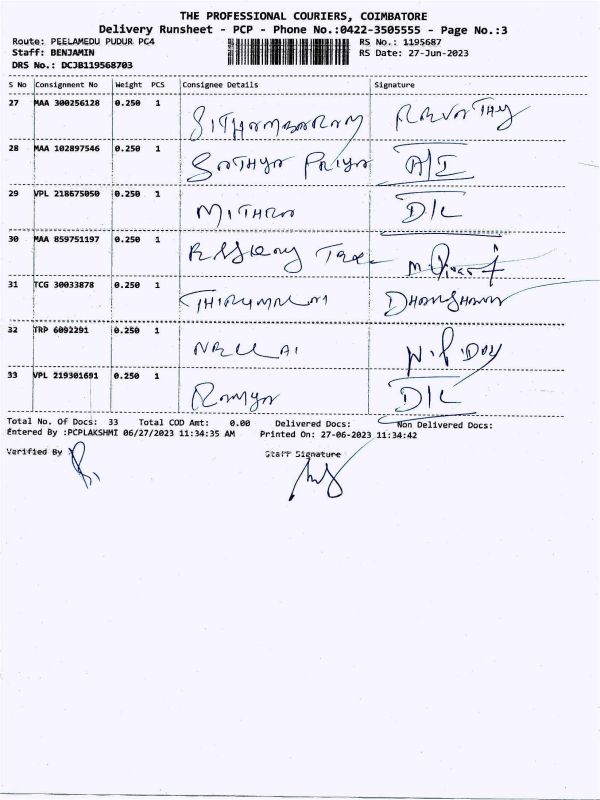 THE PROFESSIONAL COURIERS, COIMBATORE
Delivery Runsheet - PCP - Phone No.:0422-3505555 - Page No.:3
Route: PEELAMEDU PUDUR PC4 RS No.: 1195687
Staff: BENJAMIN RS Date: 27-Jun-2023
DRS No.: DCJB119568703
S No Consignment No Weight PCS Consignee Details Signature
27 MAA 300256128 0.250 1 SITHAMBARAM REVATHY
28 MAA 102897546 0.250 1 SATHYA PRIYA A/I
29 VPL 218675050 0.250 1 MITHRA D/L
30 MAA 859751197 0.250 1
31 TCG 30033878 0.250 1 THIRUMALAI DHANSHANA
32 TRP 6092291 0.250 1 NELLAI
33 VPL 219301691 0.250 1 RAMYA D/L
Total No. Of Docs: 33 Total COD Amt: 0.00 Delivered Docs: Non Delivered Docs:
Entered By :PCPLAKSHMI 06/27/2023 11:34:35 AM Printed On: 27-06-2023 11:34:42
Verified By Staff Signature